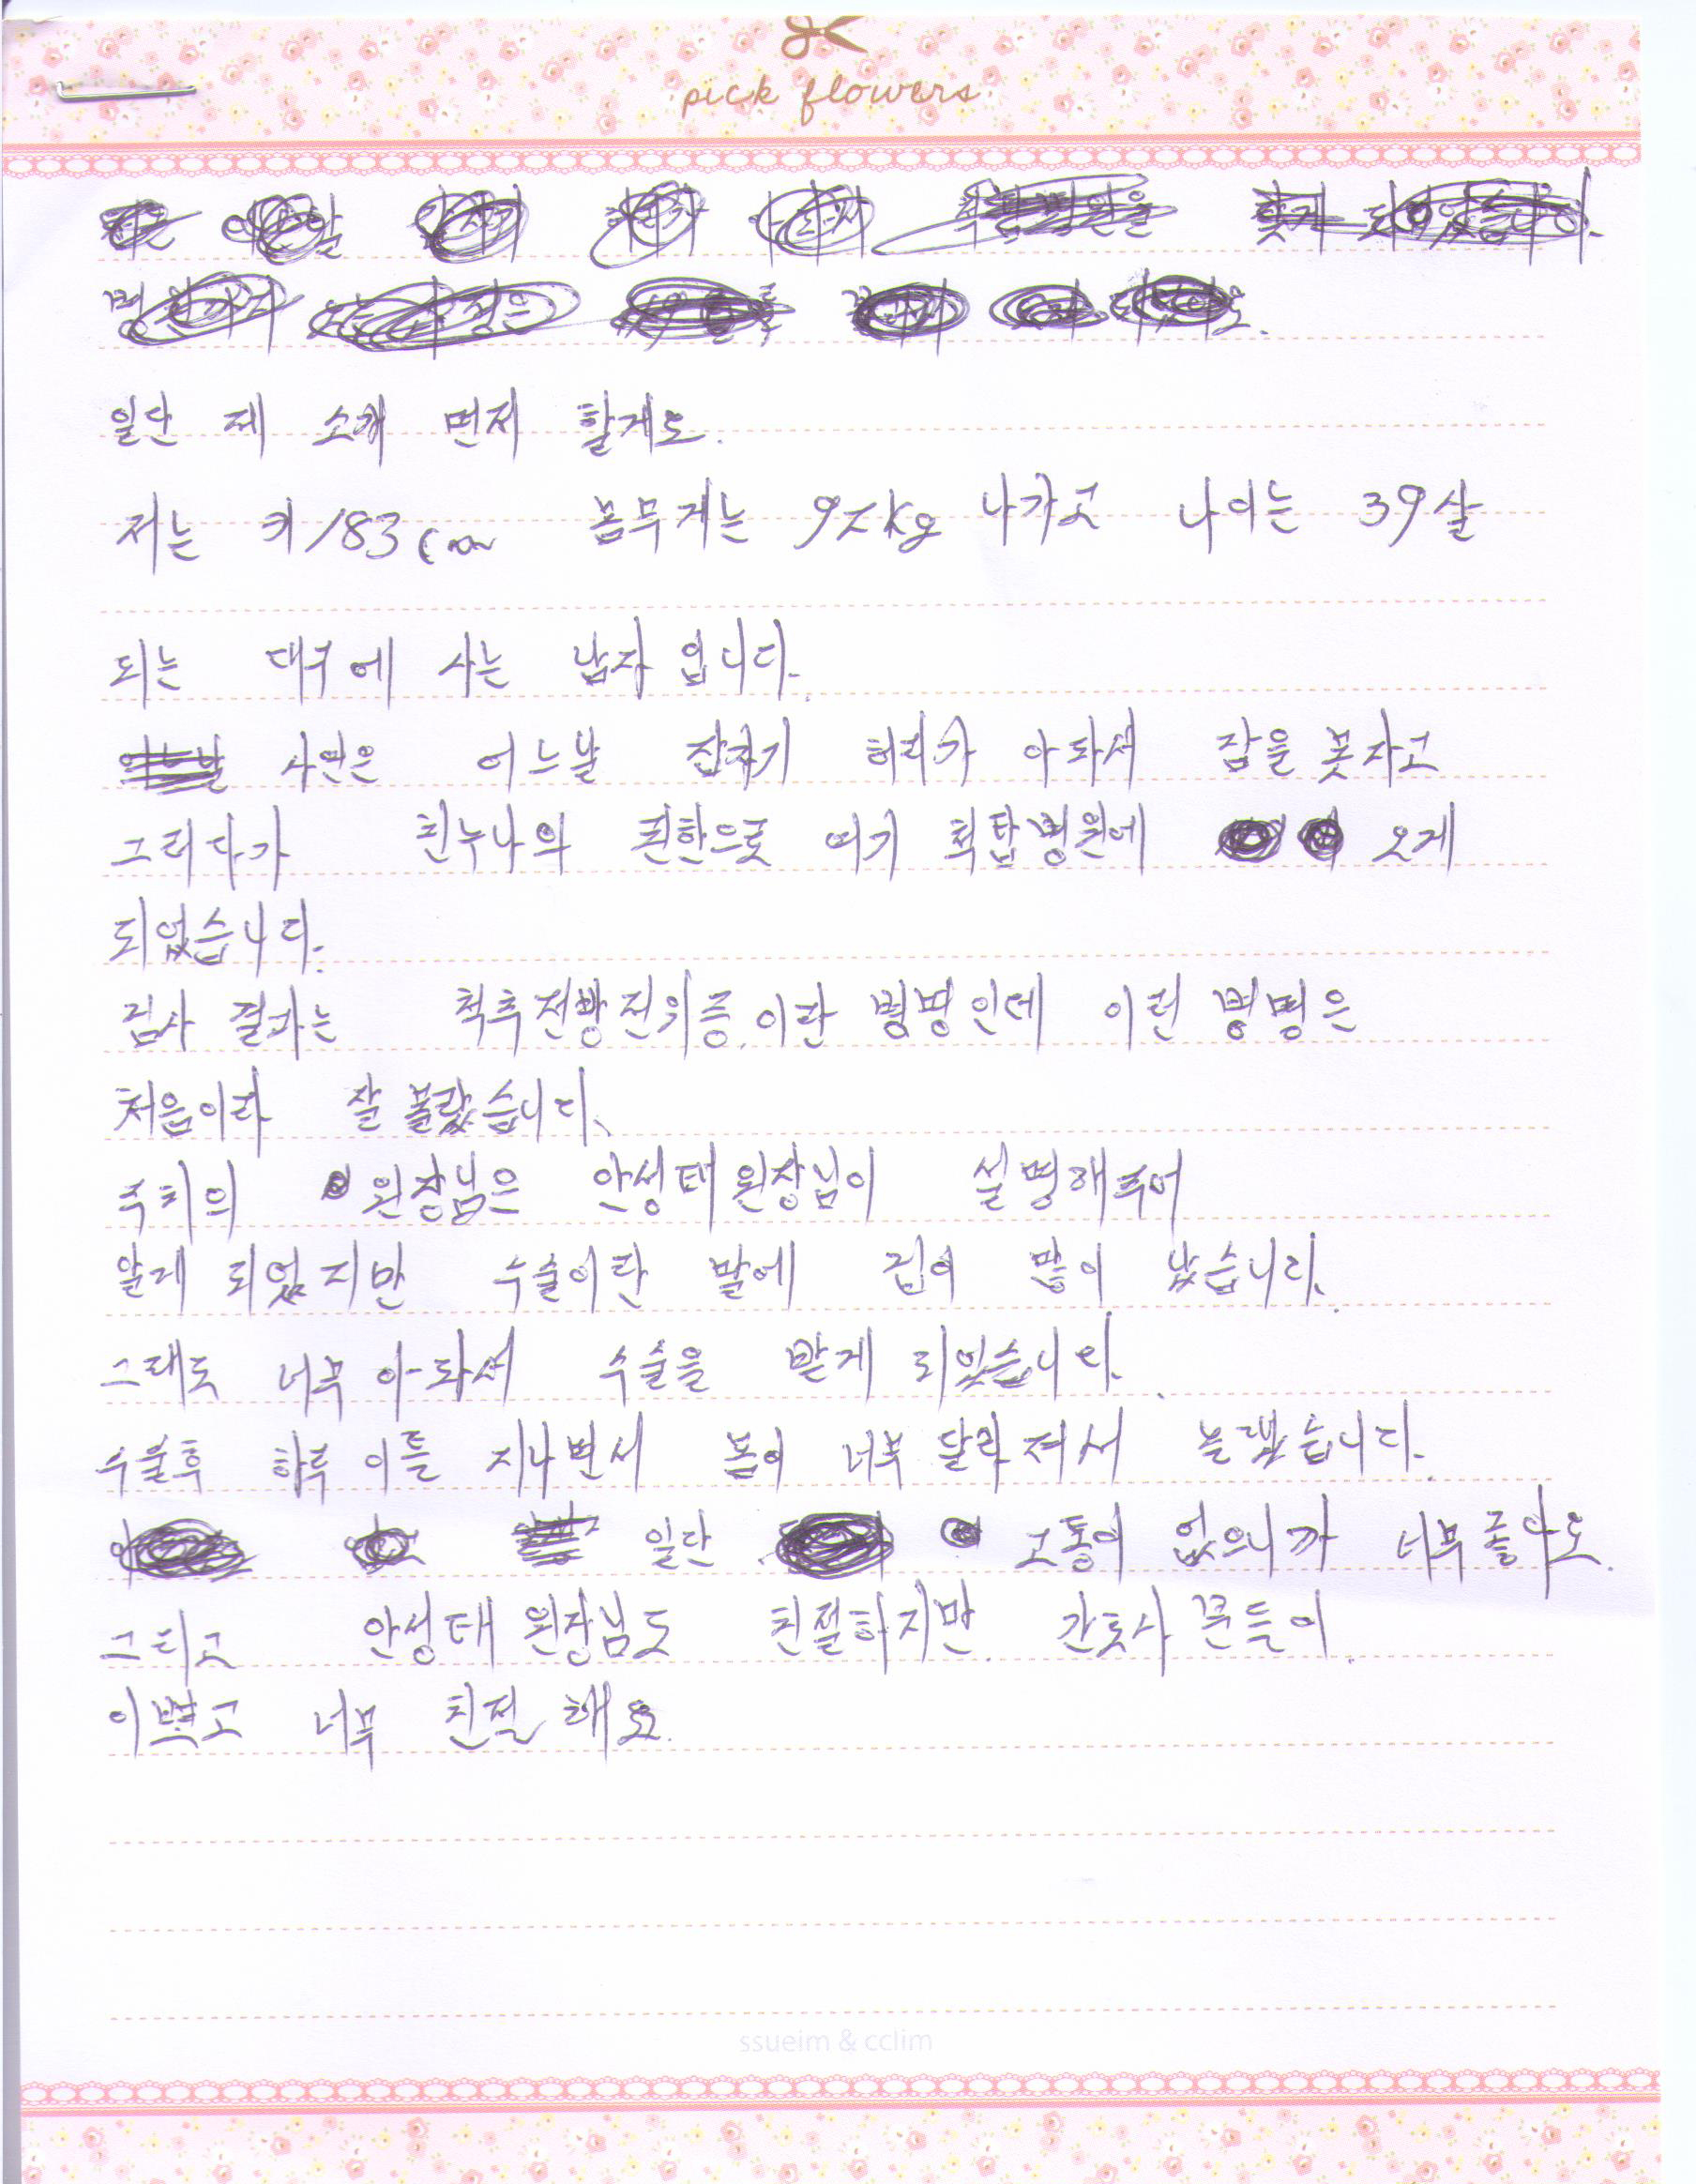 pick flowers
일단 제 소개 먼저 할게요.
저는 키 183cm 몸무게는 92kg 나가고 나이는 39살
되는 대구에 사는 남자 입니다.
사연은 어느날 갑자기 허리가 아파서 잠을 못자고
그러다가 친누나의 권한으로 여기 척탑병원에 오게
되었습니다.
검사 결과는 척추전방전위증.이란 병명인데 이런 병명은
처음이라 잘 몰랐습니다.
주치의 원장님은 안성태 원장님이 설명해주어
알게 되었지만 수술이란 말에 겁이 많이 났습니다.
그래도 너무 아파서 수술을 받게 되었습니다.
수술후 하루 이틀 지나면서 몸이 너무 달라져서 놀랬습니다.
일단 고통이 없으니까 너무 좋아요.
그리고 안성태 원장님도 친절하지만 간호사 분들이.
이쁘고 너무 친절해요.
ssueim & cclim